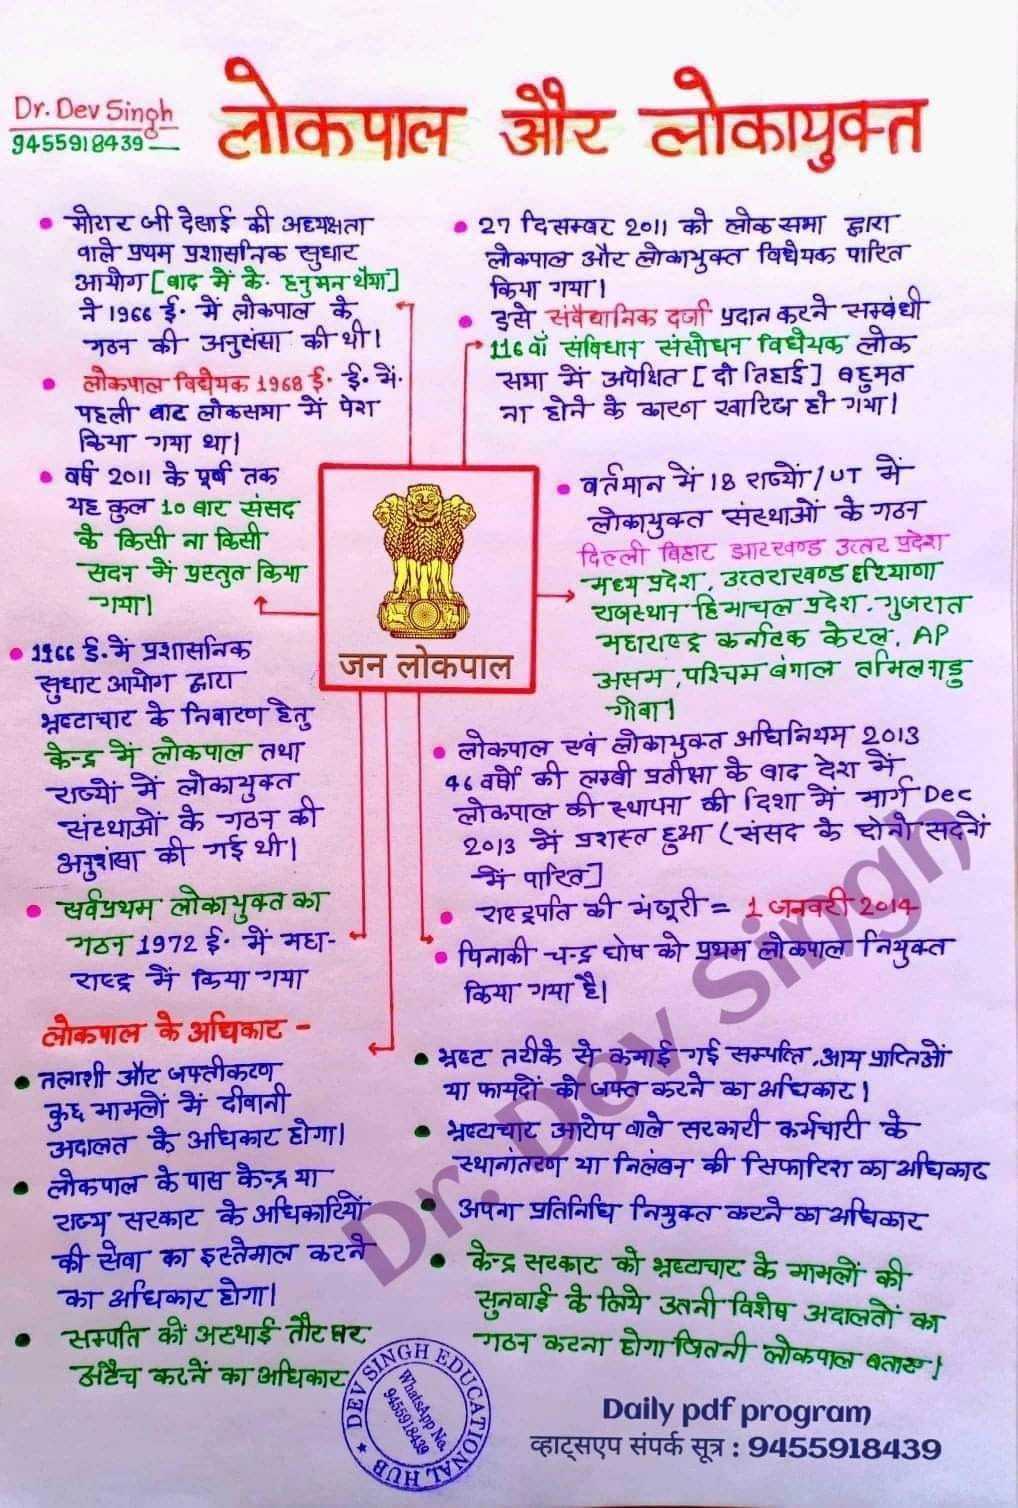 Dr. Dev Singh
9455918439
लोकपाल और लोकायुक्त
मोरार जी देसाई की अध्यक्षता
वाले प्रथम प्रशासनिक सुधार
आयोग [बाद में के. हनुमन थैया]
ने 1966 ई. में लोकपाल के
गठन की अनुसंसा की थी।
लोकपाल विधेयक 1968 ई. ई. में
पहली बार लोकसभा में पेश
किया गया था।
वर्ष 2011 के पूर्व तक
यह कुल 10 बार संसद
के किसी ना किसी
सदन में प्रस्तुत किया
गया।
1966 ई. में प्रशासनिक
सुधार आयोग द्वारा
भ्रष्टाचार के निवारण हेतु
केन्द्र में लोकपाल तथा
राज्यों में लोकायुक्त
संस्थाओं के गठन की
अनुशंसा की गई थी।
सर्वप्रथम लोकायुक्त का
गठन 1972 ई. में महा-
राष्ट्र में किया गया
27 दिसम्बर 2011 को लोक सभा द्वारा
लोकपाल और लोकायुक्त विधेयक पारित
किया गया।
इसे संवैधानिक दर्जा प्रदान करने सम्बंधी
116 वाँ संविधान संसोधन विधेयक लोक
सभा में अपेक्षित [दो तिहाई] बहुमत
ना होने के कारण खारिज हो गया।
वर्तमान में 18 राज्यों / UT में
लोकायुक्त संस्थाओं के गठन
दिल्ली बिहार झारखण्ड उत्तर प्रदेश
मध्य प्रदेश, उत्तराखण्ड हरियाणा
राजस्थान हिमाचल प्रदेश. गुजरात
महाराष्ट्र कर्नाटक केरल, AP
असम, पश्चिम बंगाल तमिलनाडु
गोवा।
जन लोकपाल
लोकपाल एवं लोकायुक्त अधिनियम 2013
46 वर्षों की लम्बी प्रतीक्षा के बाद देश में
लोकपाल की स्थापना की दिशा में मार्ग Dec
2013 में प्रशस्त हुआ (संसद के दोनो सदनों
में पारित]
राष्ट्रपति की मंजूरी = 1 जनवरी 2014
पिनाकी चन्द्र घोष को प्रथम लोकपाल नियुक्त
किया गया है।
लोकपाल के अधिकार -
तलाशी और जफ्तीकरण
कुछ मामलों में दीवानी
अदालत के अधिकार होगा।
लोकपाल के पास केन्द्र या
राज्य सरकार के अधिकारियों
की सेवा का इस्तेमाल करने
का अधिकार होगा।
सम्पति को अस्थाई तौर पर
अटैच करनें का अधिकार
भ्रष्ट तरीके से कमाई गई सम्पत्ति, आय प्राप्तिओं
या फायदों को जफ्त करने का अधिकार।
भ्रष्टाचार आरोप वाले सरकारी कर्मचारी के
स्थानांतरण या निलंबन की सिफारिश का अधिकार
अपना प्रतिनिधि नियुक्त करने का अधिकार
केन्द्र सरकार को भ्रष्टाचार के मामलों की
सुनवाई के लिये उतनी विशेष अदालतों का
गठन करना होगा जितनी लोकपाल बताए।
Dr. Dev Singh
DEV SINGH EDUCATIONAL HUB
WhatsApp No.
9455918439
Daily pdf program
व्हाट्सएप संपर्क सूत्र : 9455918439